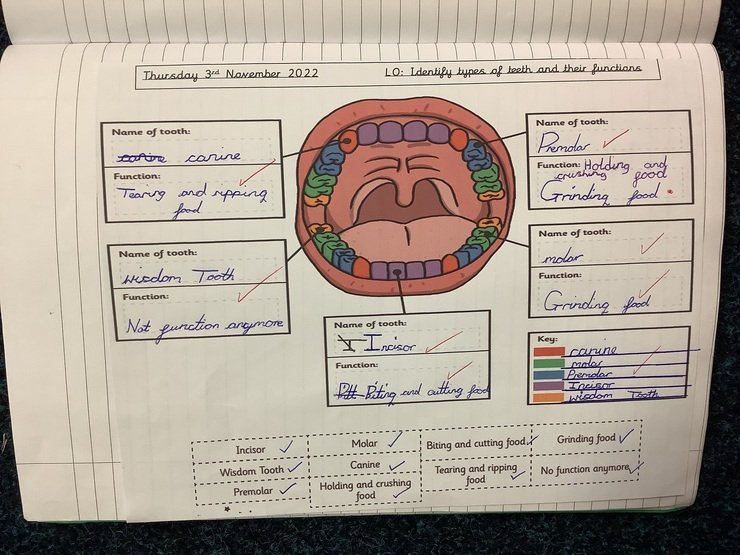 Thursday 3rd November 2022
LO: Identify types of teeth and their functions
Name of tooth:
canine
Function:
Tearing and ripping
food
Name of tooth:
Premolar
Function: Holding and
crushing food
Grinding food
Name of tooth:
wisdom Tooth
Function:
Not function anymore
Name of tooth:
molar
Function:
Grinding food
Name of tooth:
I Incisor
Function:
Bit Biting and cutting food
Key:
canine
molar
Premolar
Incisor
wisdom Tooth
Incisor
Molar
Biting and cutting food
Grinding food
Wisdom Tooth
Canine
Tearing and ripping
food
No function anymore
Premolar
Holding and crushing
food